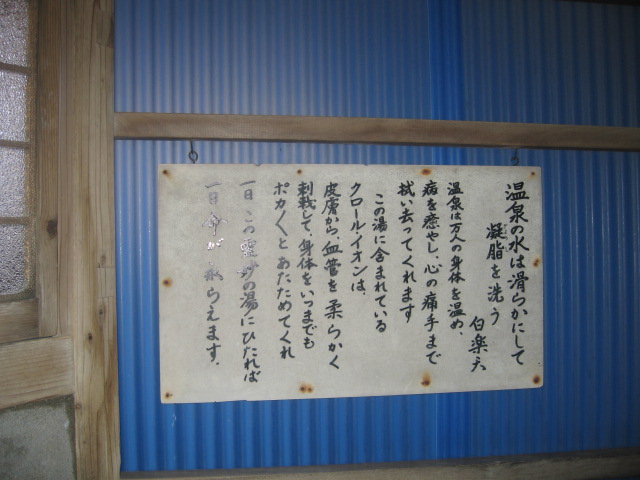 温泉の水は滑らかにして
凝脂を洗う
白楽天
温泉は万人の身体を温め、
病を癒やし、心の痛手まで
拭い去ってくれます
この湯に含まれている
クロール・イオンは、
皮膚から、血管を柔らかく
刺戟して、身体をいつまでも
ポカ〱とあたためてくれ
一日この霊妙の湯にひたれば
一日命が永らえます.